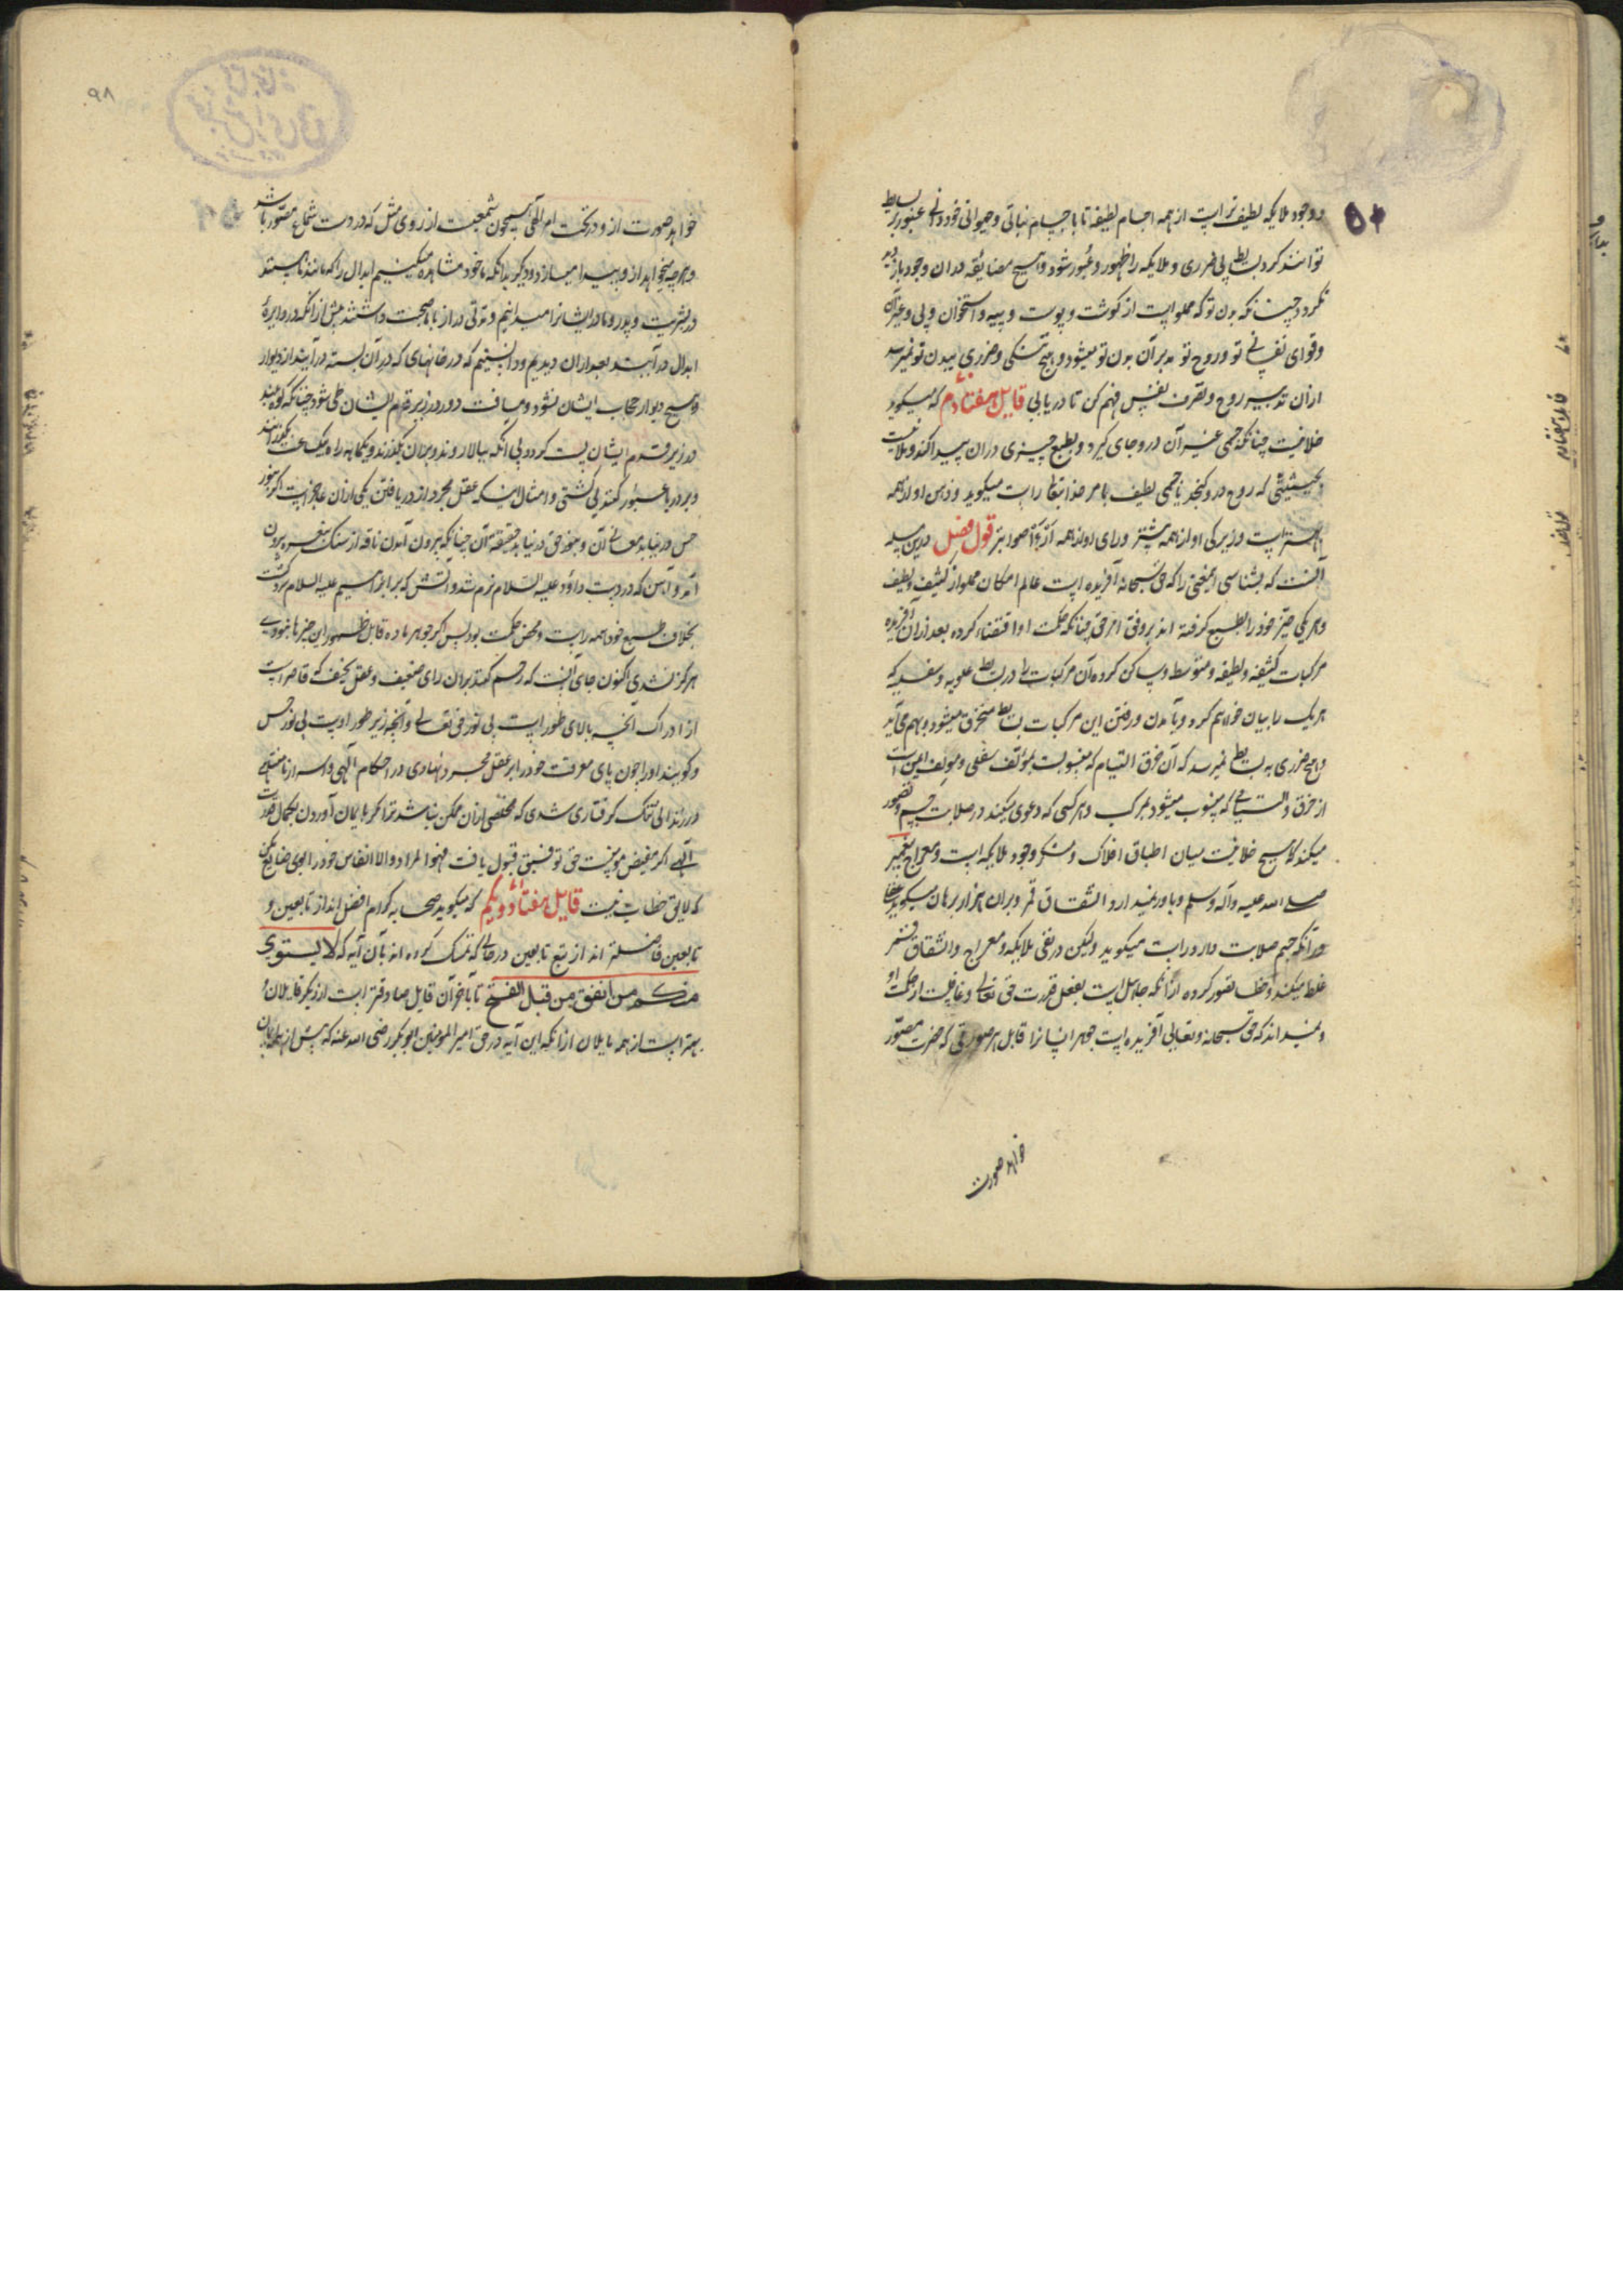 و وجود ملایکه لطیف تر است از همه اجسام لطیفه تا با جسام نباتی و حیوانی خود در عبور بر بسایط
توانند کرد بی ضرری و ملایکه را ظهور و عبور شود و هیچ مضایقه در آن وجود باز دید
نکردد چنانکه بدن تو که مملو است از کوشت و پوست و پیه و استخوان و پی و غیر آن
و قوای نفسانی تو و روح تو مدبر آن بدن تو میشود و هیچ تنکی و ضرری ببدن تو نمیرسد
از آن تدبیر روح و تصرف نفس فهم کن تا دریابی قایل هفتادم که میکوید
خلا نیست چنانکه جسمی غیر آن درو جای کیرد و بطبع چیزی در آن پیدا کند و ملا نیست
بحیثیتی که روح درو نکنجد یا جسمی لطیف بامر خدایتعالی راست میکوید و درس او از همه
بهتر است و زیرکی او از همه بیشتر و رای او از همه آرا اصوابتر قول فصل درین مسله
آنست که بشناسی این معنی را که حق سبحانه آفریده است عالم امکان مملو از کثیف و لطیف
و هر یکی حیز خود را بالطبع کرفته اند بر وفق امر حق چنانکه حکمت او اقتضاء کرده بعد از آن آفریده
مرکبات کثیفه و لطیفه و متوسطه و ساکن کرده آن مرکبات را در بسایط علویه و سفلیه که
هر یک را بیان خواهم کرد و بآمدن و رفتن این مرکبات بسایط منخرق میشود و بهم می آید
و هیچ ضرری به بسایط نمیرسد که آن خرق و التیام که منسوبست بمؤتلف سفلی و مؤتلف ایمن است
از خرق و التیامی که منسوب میشود بمرکب و هر کسی که دعوی میکند در صلابت جسم و تصور
میکند که هیچ خلا نیست میان اطباق افلاک و منکر وجود ملایکه است و معراج پیغمبر
صلی الله علیه و آله و سلم و باور نمیدارد انشقاق قمر و بران هزار برهان میکوید
در آنکه جسم صلابت دارد راست میکوید ولیکن در نفی ملایکه و معراج و انشقاق قمر
غلط میکند و خطا تصور کرده از آنکه جاهل است بفعل قدرت حق تعالی و غافلست از حکمت او
و نمیداند که حق سبحانه و تعالی آفریده است جوهر انسانرا قابل هر صورتی که حضرت مصور
خواهد صورت
۹۸
خواهد صورت از و در تحت امر الهی همچون شمعیست از روی مثل که در دست شماع مصور باشد
و هر چه میخواهد از و پیدا میسازد و دیکر بدانکه ما خود مشاهده میکنیم ابدال را که مانند ما هستند
در بشریت و پدر و مادر ایشانرا میدانیم و مدتی دراز با ما صحبت داشتند پیش از آنکه در دایرۀ
ابدال در آیند بعد از آن دیدیم و دانستیم که در خانهای که در آن بسته در آیند از دیوار
و هیچ دیوار حجاب ایشان نشود و مسافت دور در زیر قدم ایشان طی شود چنانکه کوه بلند
در زیر قدم ایشان پست کردد بی آنکه ببالا روند و بر آن بکذرند و یکماهه راه بیک ساعت
و بر دریا عبور کنند بی کشتی و امثال اینکه عقل مجرد از دریافتن یکی از آن عاجز است اکر بنور
حس در نیابد معانی آن و بنور حق در نیابد حقیقة آن چنانکه بیرون آمدن ناقه از سنک بیرون
آمد و آهن که در دست داود علیه السلام نرم شد و آتش که بر ابراهیم علیه السلام سرد کشت
بخلاف طبیع خود همه راست و محض حکمت بود پس اکر جوهر ماده قابل ظهور این چیزها نبودی
هرکز نشدی اکنون جای آنست که رحم کنند بر آن رای ضعیف و عقل نحیف که قاصر است
از ادراک آنچه بالای طور است بی نور حق تعالی و آنچه زیر طور اوست بی نور حس
و کویند او را چون پای معرفت خود را بر عقل مجرد نهادی در احکام الهی و اسرار نامتناهی
در زندانی تنک کرفتاری شدی که مخلصی از آن ممکن نباشد ترا مکر بایمان آوردن بکمال قدرت
الهی اکر مفیض موهبت حق توفیق قبول یافت فهوا لمراد و الا انفاس خود را ضایع مکن
که لایق خطاب نیست قایل هفتاد و یکم که میکوید صحابه کرام افضل اند از تابعین و
تابعین فاضلتر اند از تبع تابعین در حالی که تمسک کرده اند بآن آیه که لا یستوی
منکم من انفق من قبل الفتح تا بآخر آن قایل صادقتر است از دیکر قایلان و
بهتر است از همه قایلان از آنکه این آیه در حق امیر المؤمنین ابو بکر رضی الله عنه که پیش از همه